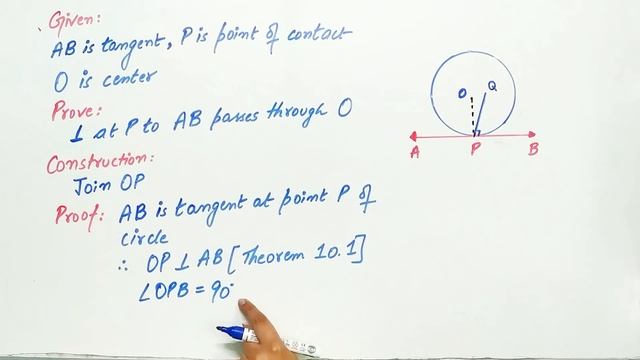 Given:
AB is tangent, P is point of contact
O is center
Prove:
⊥ at P to AB passes through O
Construction:
Join OP
Proof: AB is tangent at point P of
circle
∴ OP ⊥ AB [Theorem 10.1]
∠OPB = 90°
O Q
A P B